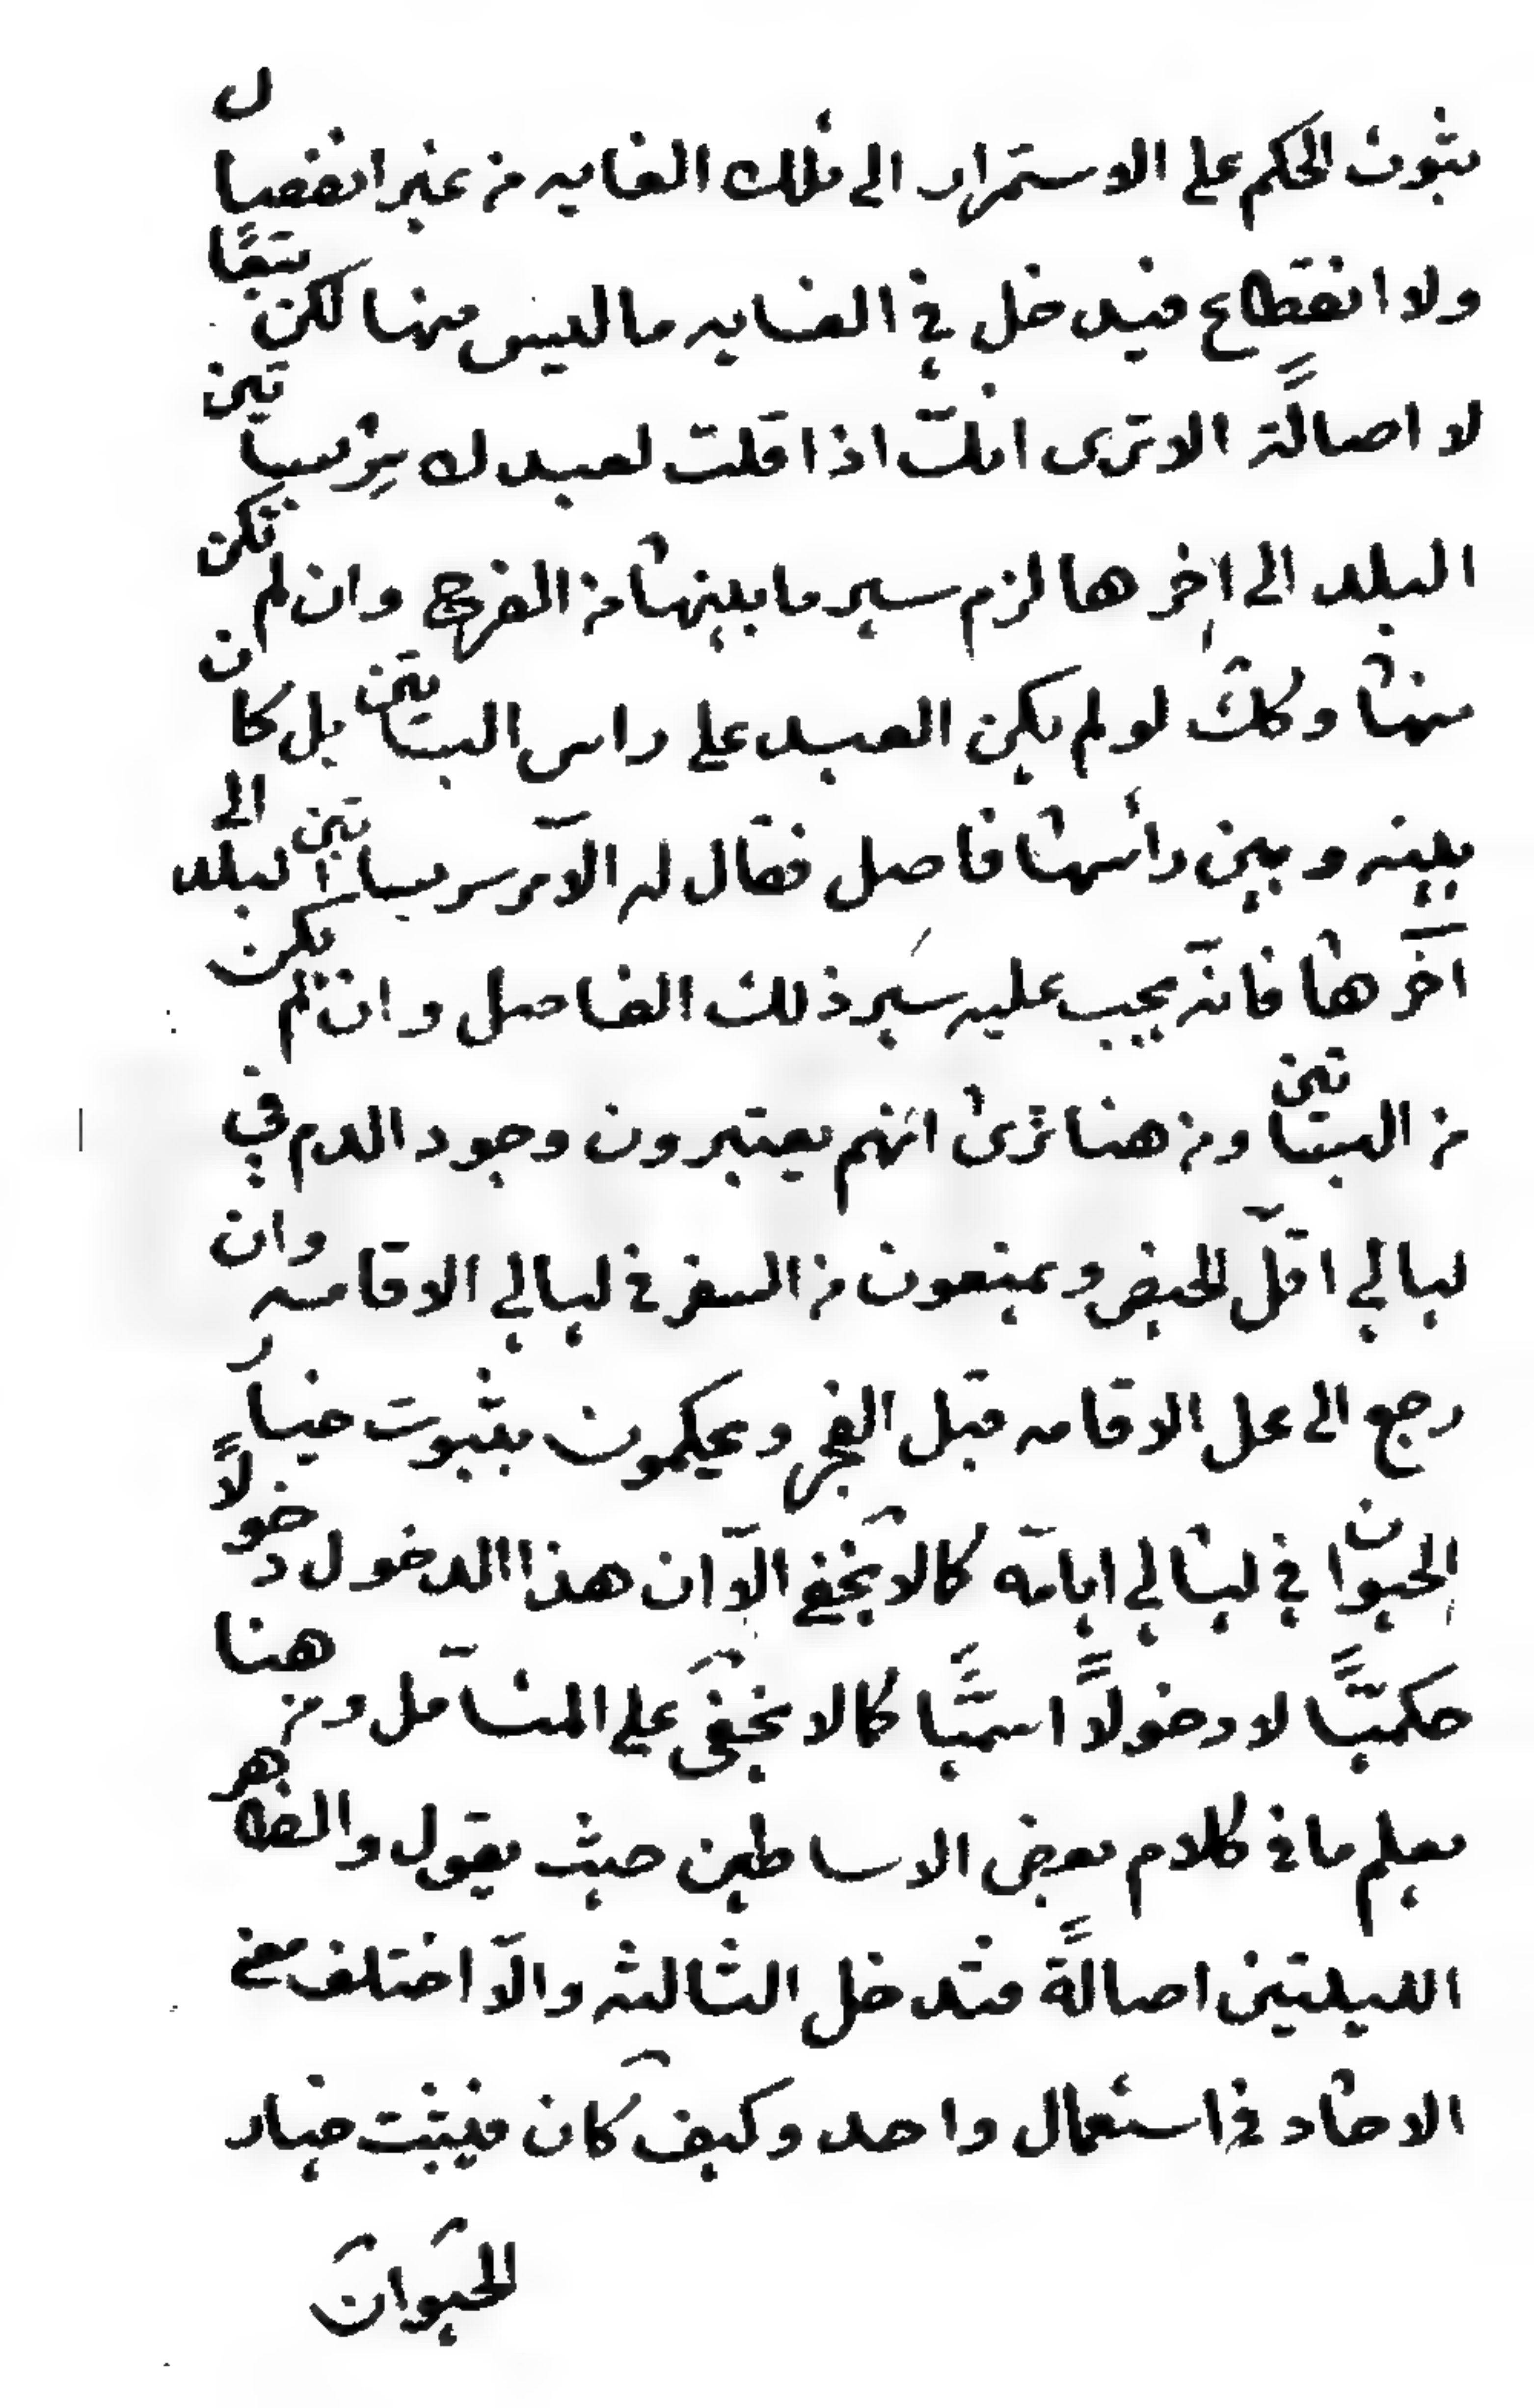 بثبوت الحكم على الاستمرار الى تلك الغايه من غير انفصال
ولا انقطاع فيدخل في الغايه ما ليس منها لكن تبعًا
لا اصالًة الا ترى انك اذا قلت لعبدك سِر بساتين
البلد الى اخرها لزم سير ما بينها من الفرج وان لم تكن
منها وكك لو لم يكن العبد على راس البساتين بل كان
بينه وبين رأسها فاصل فقال له الآمر سر بساتين البلد الى
آخرها فانّه يجب عليه سَير ذلك الفاصل وان لم يكن
من البساتين ومن هنا ترى انهم يعتبرون وجود الدم في
ليالي اقلّ الحيض ويمنعون من السفر في ليالي الاقامه وان
رجع الى محل الاقامه قبل الفجر ويحكمون بثبوت خيار
الحيوان في ليالي ايامه كما لا يخفى الّا ان هذا الدخول دخولًا
حكميًّا لا دخولًا اسميًّا كما لا يخفى على المتامل ومن هنا
يعلم ما في كلام بعض الاساطين حيث يقول والظاهر
الليلتين اصالًة فتدخل الثالثه والّا اختلف معنى
الاحاد في استعمال واحد وكيف كان فيثبت خيار
الحيوان